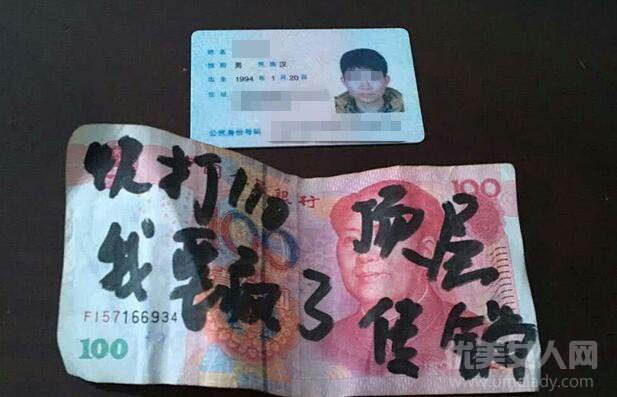 姓名
性别 男 民族 汉
出生 1994 年 1 月 20 日
住址
公民身份号码
快打110 顶层
我要疯了 传销
银行
100
FI57166934
100
优美女人网
www.umdlady.com